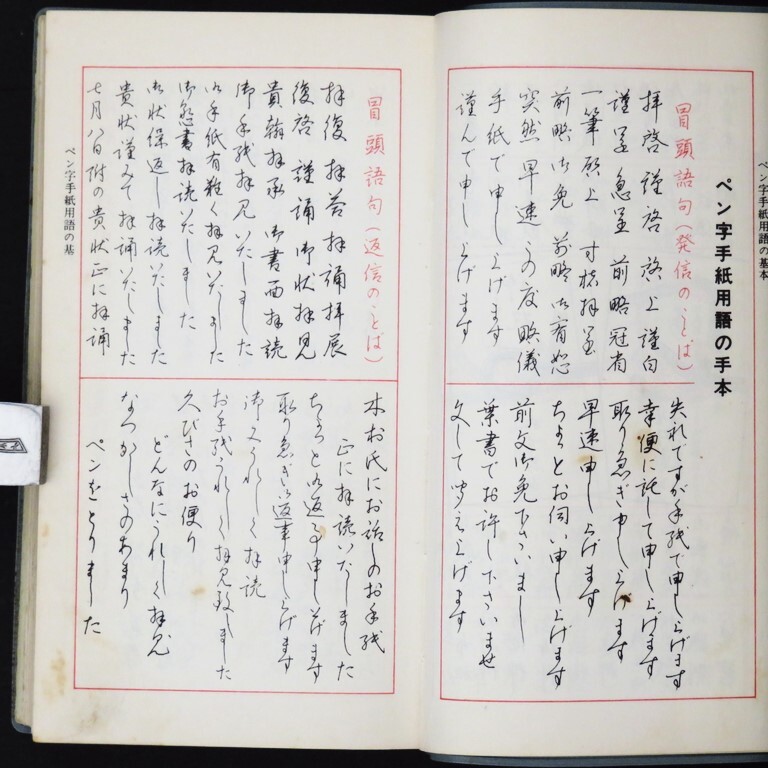 ペン字手紙用語の基本
ペン字手紙用語の手本
冒頭語句(発信のことば)
拝啓 謹啓 啓上 謹白
謹呈 急呈 前略 冠省
一筆啓上 寸楮拝呈
前略御免 前略御宥恕
突然 早速 この度 略儀
手紙で申し上げます
謹んで申し上げます
失礼ですが手紙で申し上げます
幸便に託して申し上げます
取り急ぎ申し上げます
早速申し上げます
ちょっとお伺い申し上げます
前文御免下さいまし
葉書でお許し下さいませ
文して申し上げます
冒頭語句(返信のことば)
拝復 拝答 拝誦 拝展
復啓 謹誦 御状拝見
貴翰拝承 御書面拝読
御手紙拝見いたしました
御手紙有難く拝見いたしました
御懇書拝読いたしました
御状繰返し拝読いたしました
貴状謹みて拝誦いたしました
七月八日附の貴状正に拝誦
木お氏にお話しのお手紙
正に拝読いたしました
ちょっと御返事申し上げます
取り急ぎ御返事申し上げます
御文うれしく拝読
お手紙うれしく拝見致しました
久びさのお便り
どんなにうれしく拝見
なつかしさのあまり
ペンをとりました
ペン字手紙用語の基